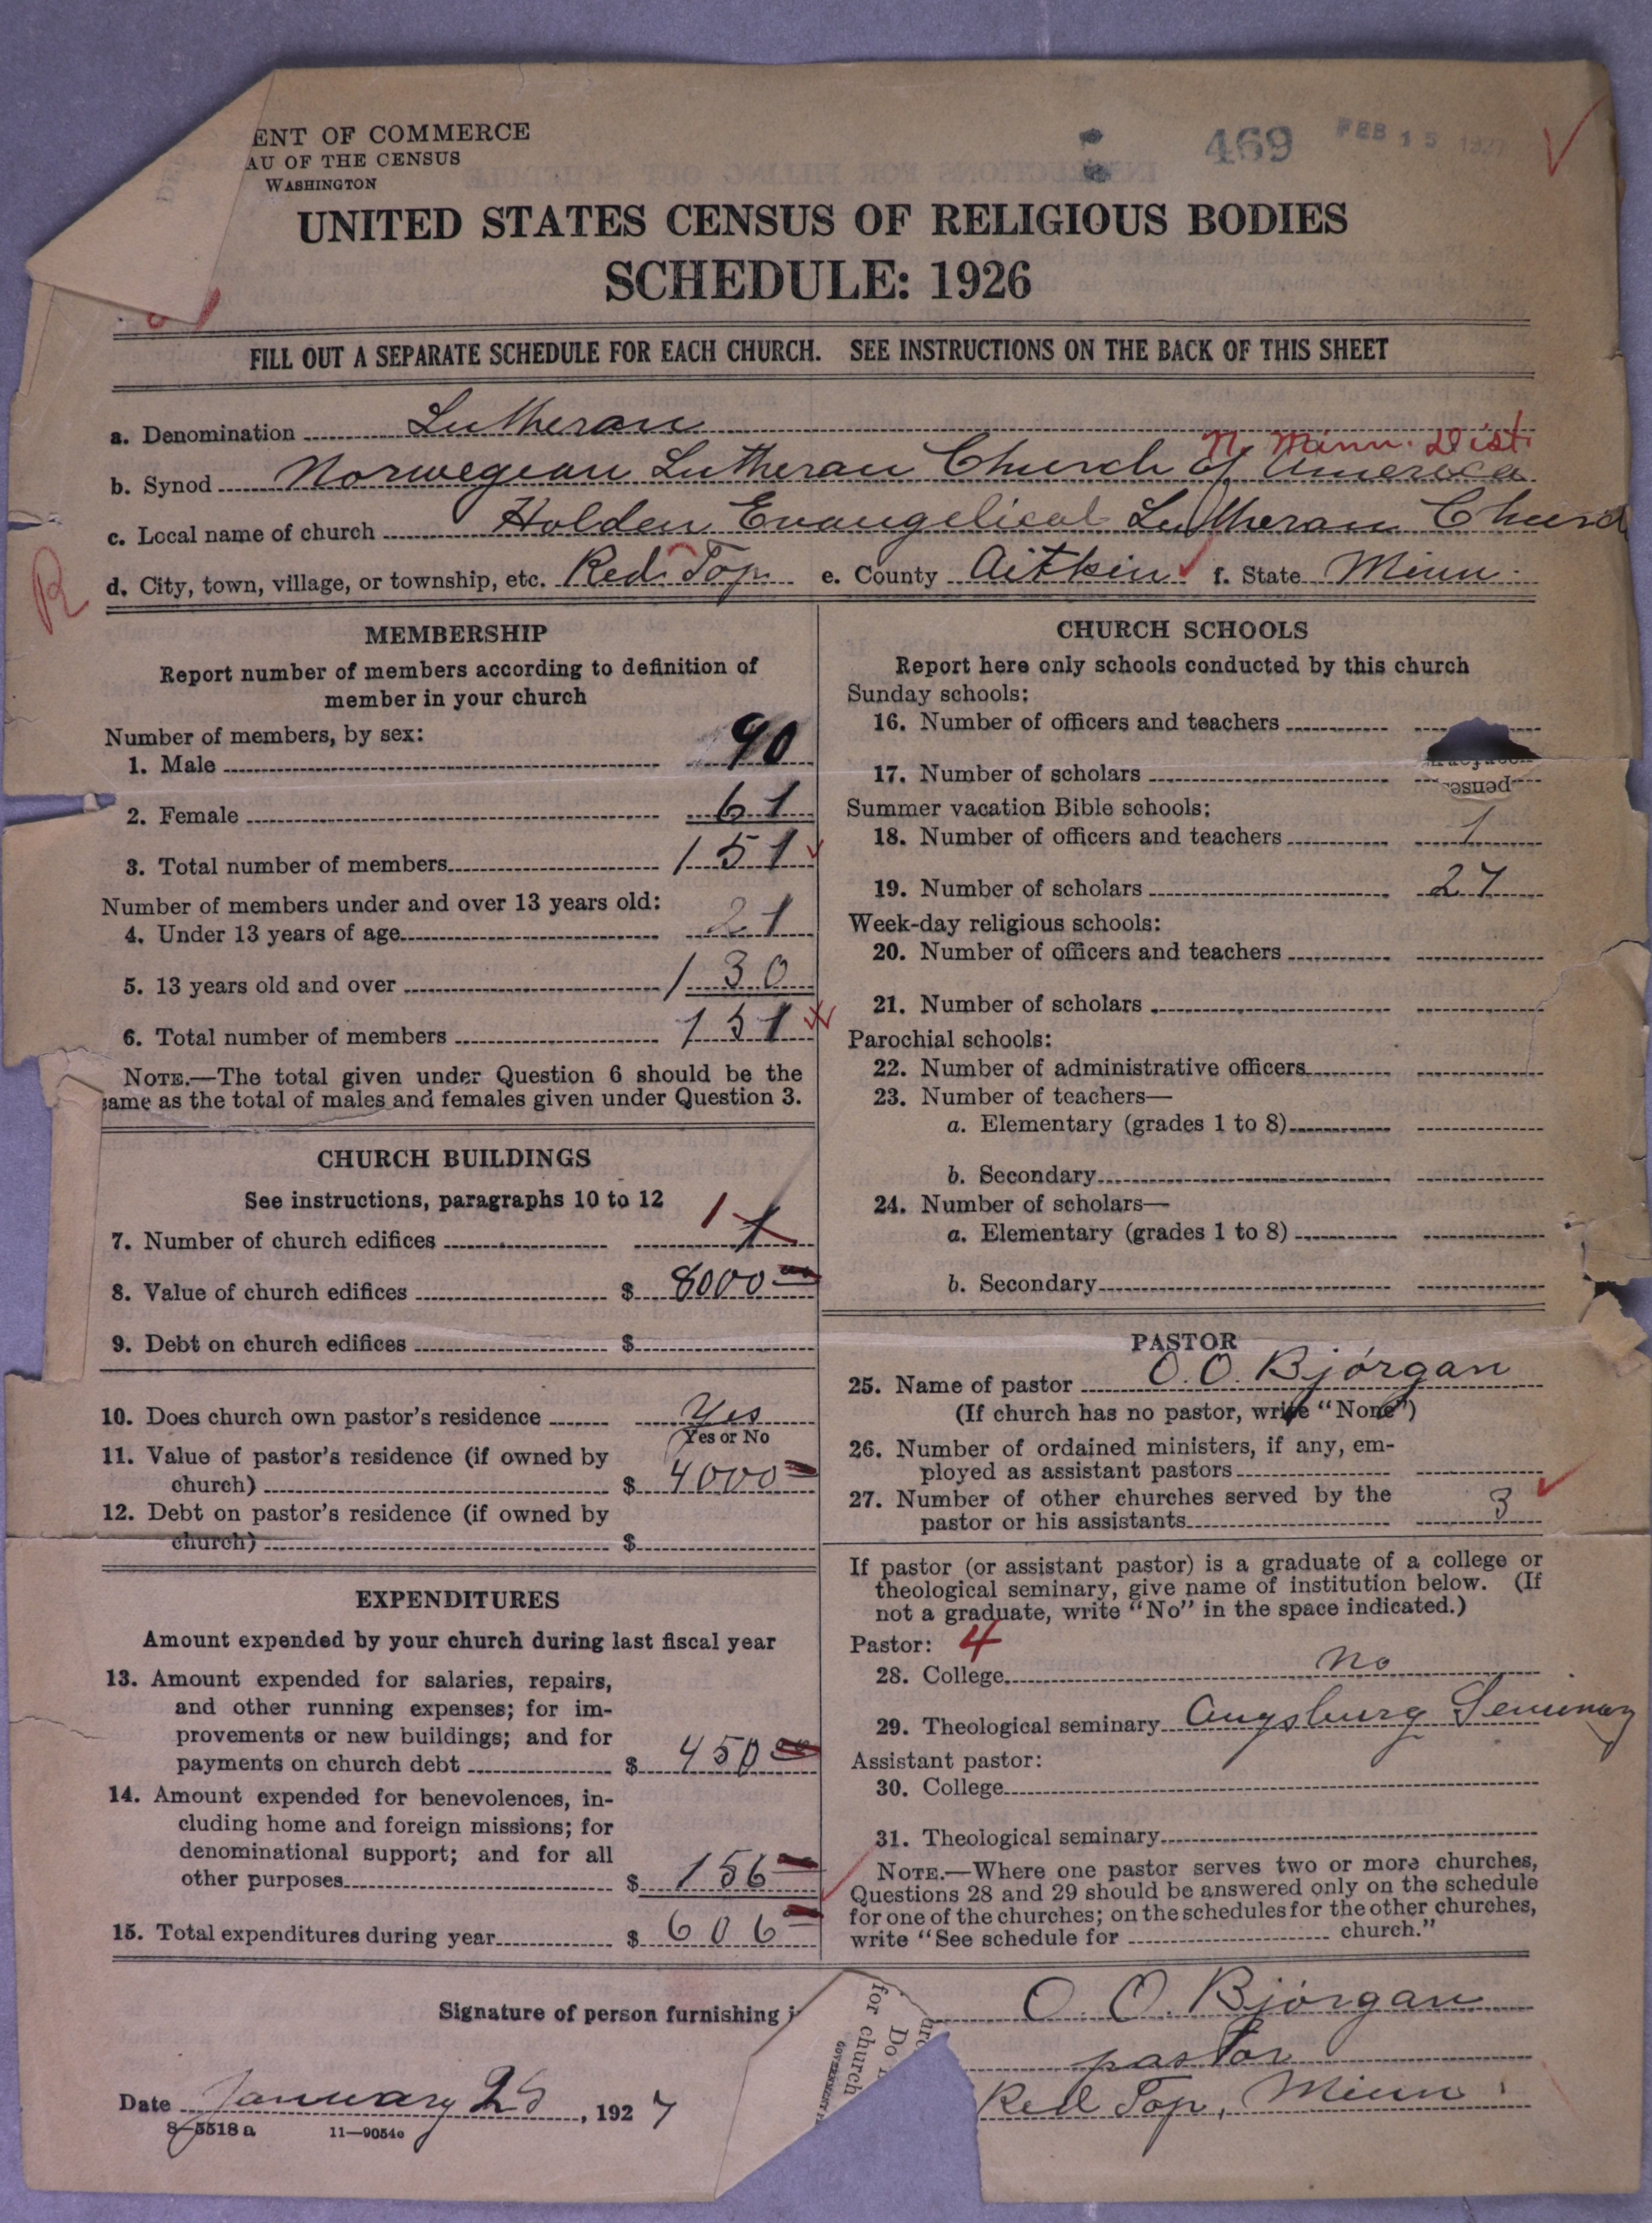 ENT OF COMMERCE
AU OF THE CENSUS
WASHINGTON
469
FEB 15 1927
UNITED STATES CENSUS OF RELIGIOUS BODIES
SCHEDULE: 1926
FILL OUT A SEPARATE SCHEDULE FOR EACH CHURCH. SEE INSTRUCTIONS ON THE BACK OF THIS SHEET
a. Denomination Lutheran
N. Minn. Dist.
b. Synod Norwegian Lutheran Church of America
c. Local name of church Holden Evangelical Lutheran Church
d. City, town, village, or township, etc. Red Top e. County Aitkin f. State Minn.
R
MEMBERSHIP
Report number of members according to definition of
member in your church
Number of members, by sex:
1. Male 90
2. Female 61
3. Total number of members 151
Number of members under and over 13 years old:
4. Under 13 years of age 21
5. 13 years old and over 130
6. Total number of members 151
NOTE.—The total given under Question 6 should be the
same as the total of males and females given under Question 3.
CHURCH BUILDINGS
See instructions, paragraphs 10 to 12
7. Number of church edifices 1 1
8. Value of church edifices $ 8000
9. Debt on church edifices $
10. Does church own pastor's residence Yes
Yes or No
11. Value of pastor's residence (if owned by
church) $ 4000
12. Debt on pastor's residence (if owned by
church) $
EXPENDITURES
Amount expended by your church during last fiscal year
13. Amount expended for salaries, repairs,
and other running expenses; for im-
provements or new buildings; and for
payments on church debt $ 450 00
14. Amount expended for benevolences, in-
cluding home and foreign missions; for
denominational support; and for all
other purposes $ 156
15. Total expenditures during year $ 606
CHURCH SCHOOLS
Report here only schools conducted by this church
Sunday schools:
16. Number of officers and teachers
17. Number of scholars
Summer vacation Bible schools:
18. Number of officers and teachers 1
19. Number of scholars 27
Week-day religious schools:
20. Number of officers and teachers
21. Number of scholars
Parochial schools:
22. Number of administrative officers
23. Number of teachers—
a. Elementary (grades 1 to 8)
b. Secondary
24. Number of scholars—
a. Elementary (grades 1 to 8)
b. Secondary
PASTOR
25. Name of pastor O. O. Bjórgan
(If church has no pastor, write "None")
26. Number of ordained ministers, if any, em-
ployed as assistant pastors
27. Number of other churches served by the
pastor or his assistants 3
If pastor (or assistant pastor) is a graduate of a college or
theological seminary, give name of institution below. (If
not a graduate, write "No" in the space indicated.)
Pastor: 4
28. College No
29. Theological seminary Augsburg Seminary
Assistant pastor:
30. College
31. Theological seminary
NOTE.—Where one pastor serves two or more churches,
Questions 28 and 29 should be answered only on the schedule
for one of the churches; on the schedules for the other churches,
write "See schedule for church."
Signature of person furnishing i
O. O. Bjórgan
pastor
Red Top, Minn.
for church
Do
Date January 25, 1927
8—5518 a 11—9054o